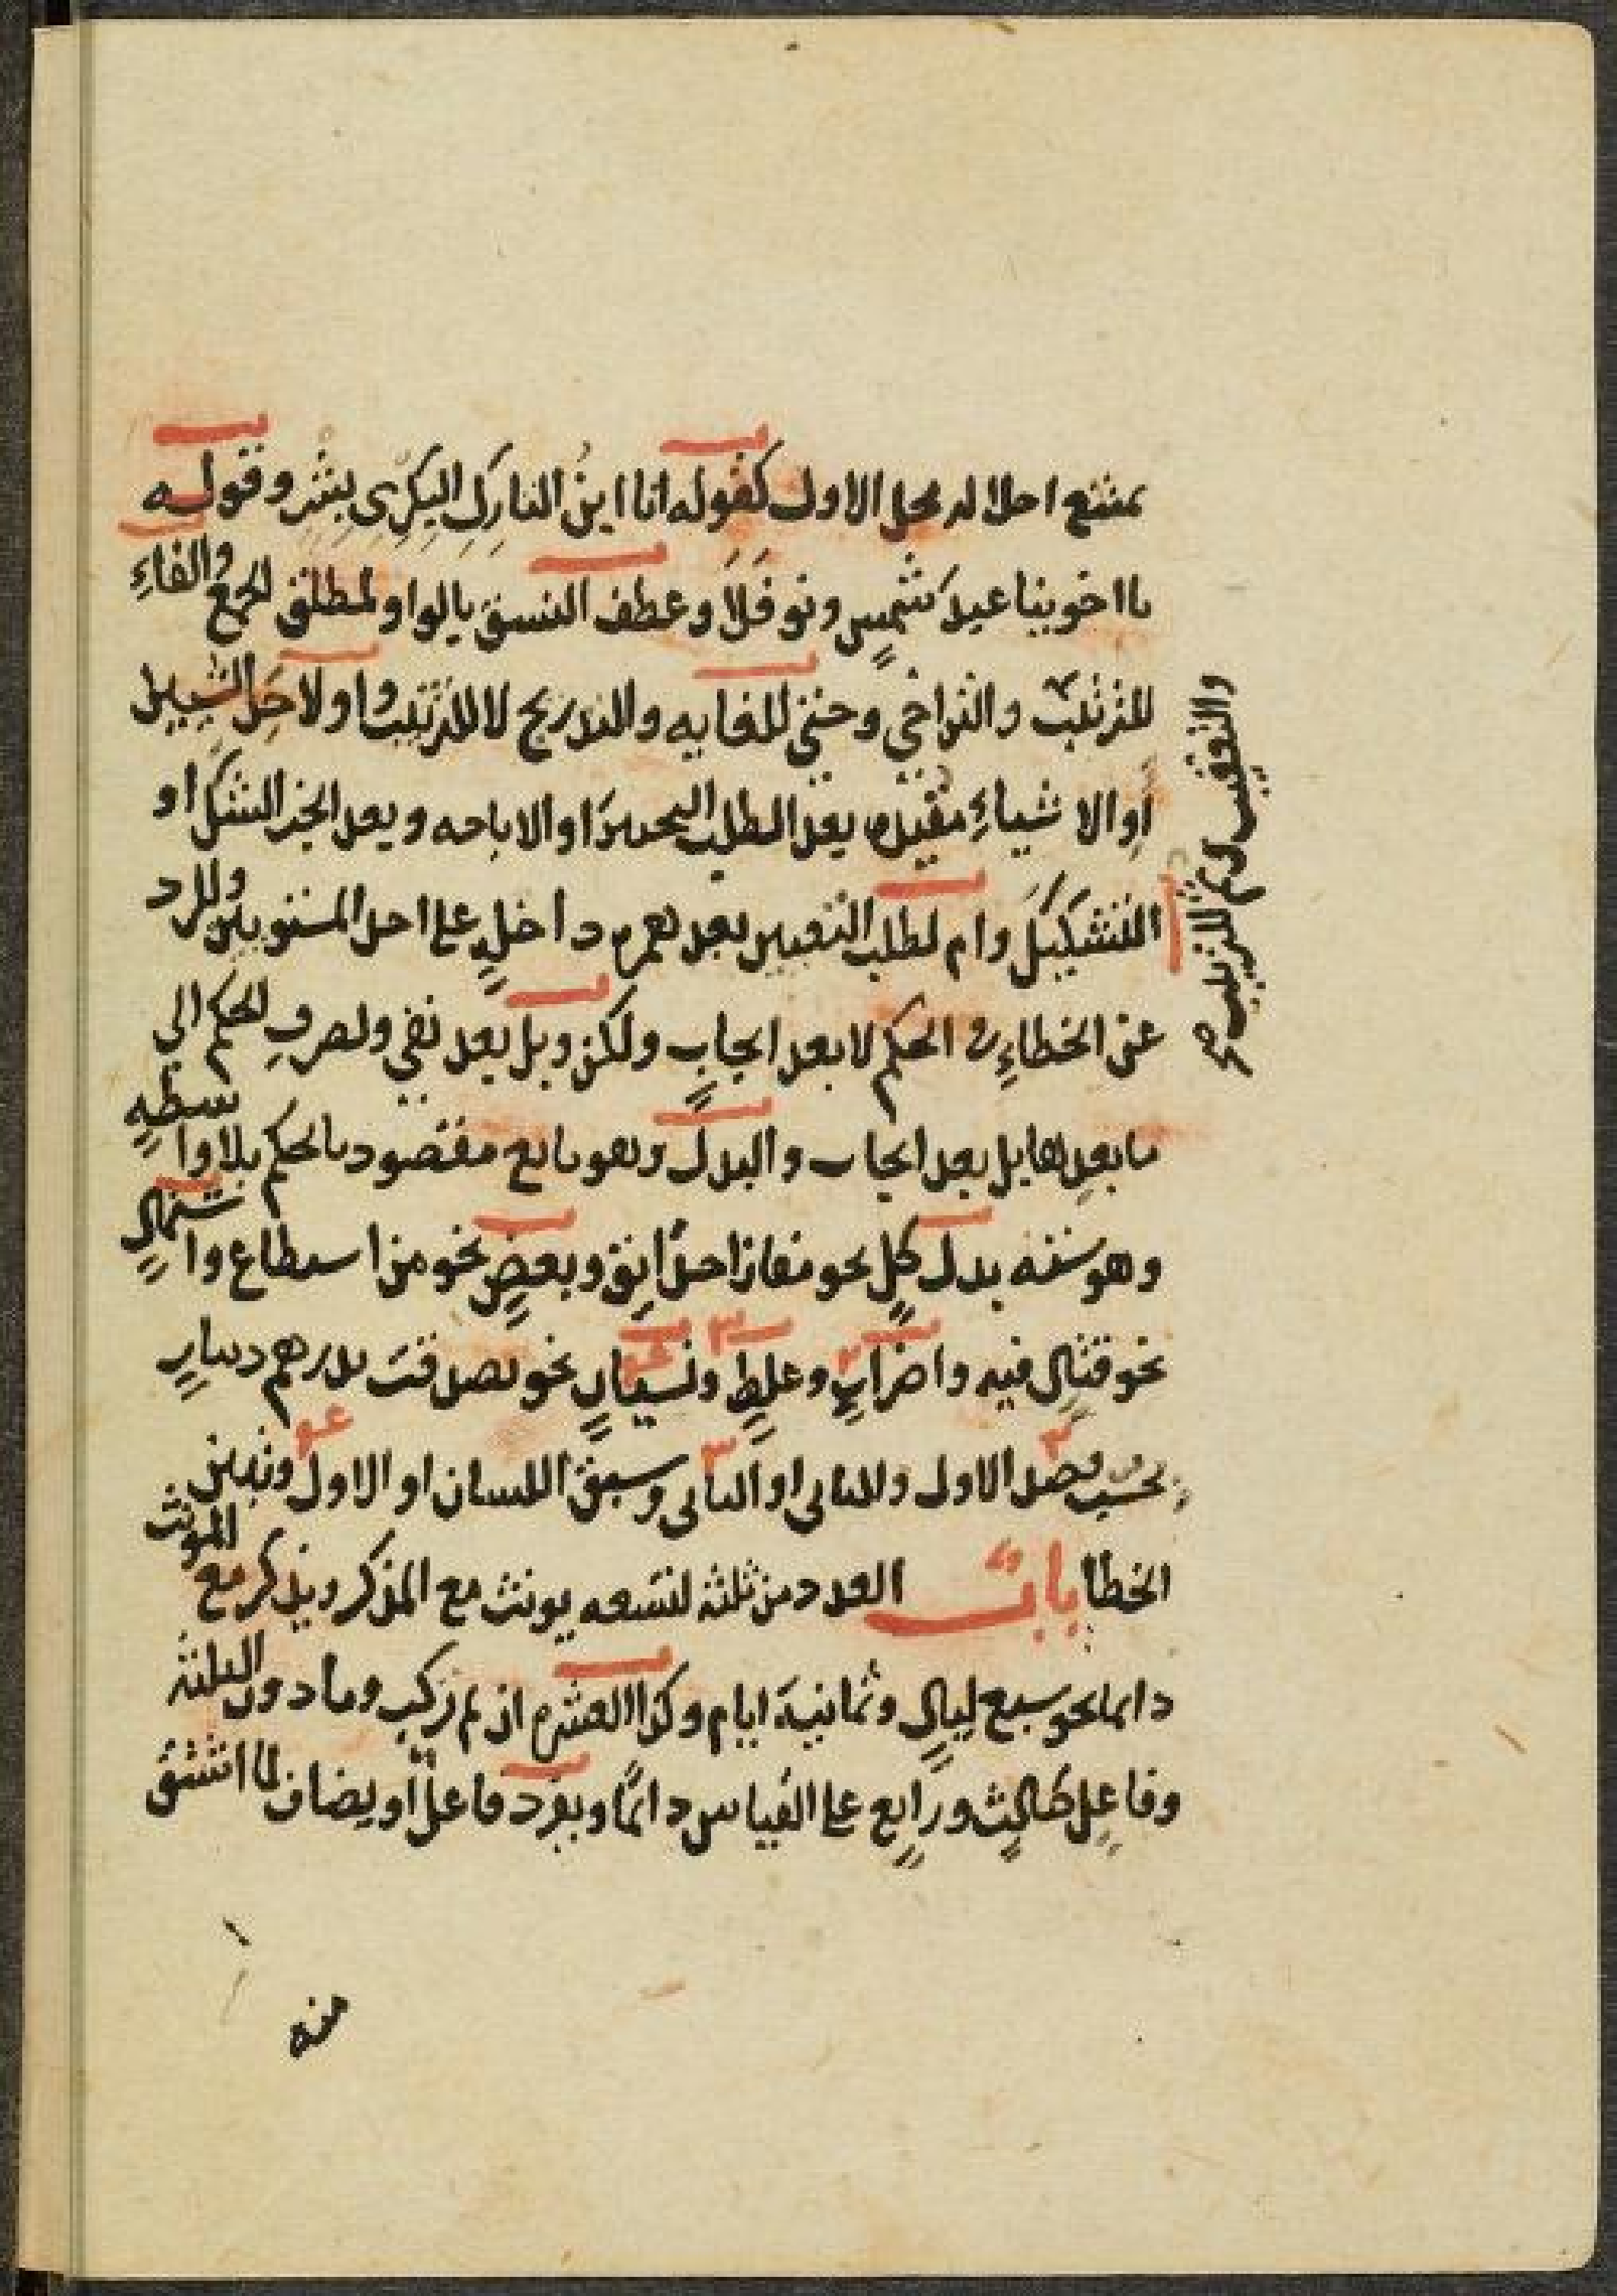 يمتنع احلاله محل الاول كقوله انا ابن التارك البكري بشر وقوله
يا اخوينا عبد شمس ونوفلا وعطف النسق بالواو لمطلق الجمع والفاء
للترتيب والتراخي وحتى للغايه والتدريج لا للترتيب واو لاحد الشيين
او الاشياء مفيدة بعد الطلب التخيير او الاباحه وبعد الخبر الشك او
التشكيك وام لطلب التعيين بعد همزة داخلة على احد المستويين وللرد
عن الخطاء في الحكم لا بعد ايجاب ولكن وبل بعد نفي ولصرف الحكم الى
ما بعدها بل بعد ايجاب والبدل وهو تابع مقصود بالحكم بلا واسطة
وهو سته بدل كل نحو مفازا حدائق وبعض نحو من استطاع واشتمال
نحو قتال فيه واضراب وغلط ونسيان نحو تصدقت بدرهم دينار
بحسب قصد الاول والثاني او الثاني وسبق اللسان او الاول وتبين
الخطا باب العدد من ثلثة لتسعه يونث مع المذكر ويذكر مع المونث
دايما نحو سبع ليال وثمانية ايام وكذا العشرة ان لم تركب وما دون الثلثة
وفاعل كثالث ورابع على القياس دائما ويفرد فاعل او يضاف لما اشتق
منه
والتعقيب وثم للترتيب صح